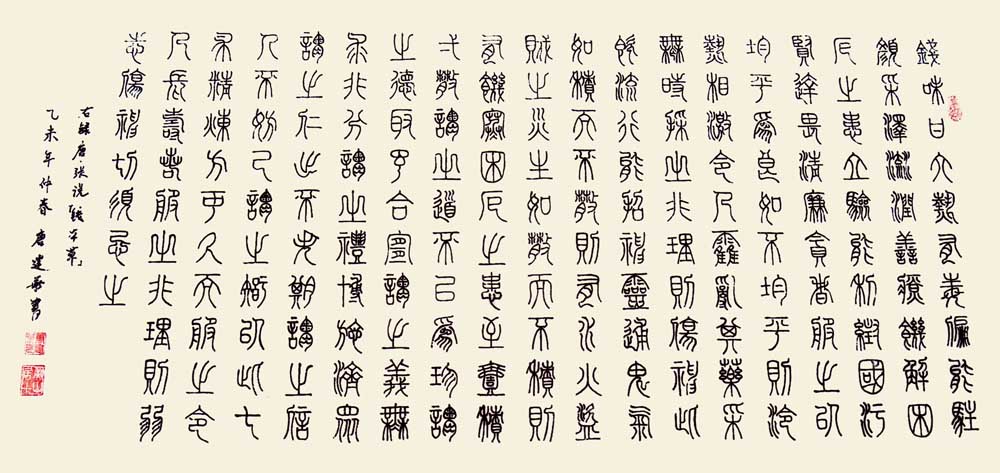 錢味甘大熱有毒偏能駐
顏采澤流潤善療饑解困
厄之患立驗能利邦國污
賢達畏清廉貪者服之以
均平為良如不均平則冷
熱相激令人霍亂其藥采
無時採之非理則傷神此
既流行能招神靈通鬼氣
如積而不散則有水火盜
賊之災生如散而不積則
有饑寒困厄之患至壹積
弌散謂之道不以為珍謂
之德取予合宜謂之義無
求非分謂之禮博施濟眾
謂之仁出不失期謂之信
入不妨己謂之智以此七
术精煉方可久而服之令
人長壽若服之非理則弱
志傷神切須忌之
右録唐張説錢本草
乙未年仲春唐建華書